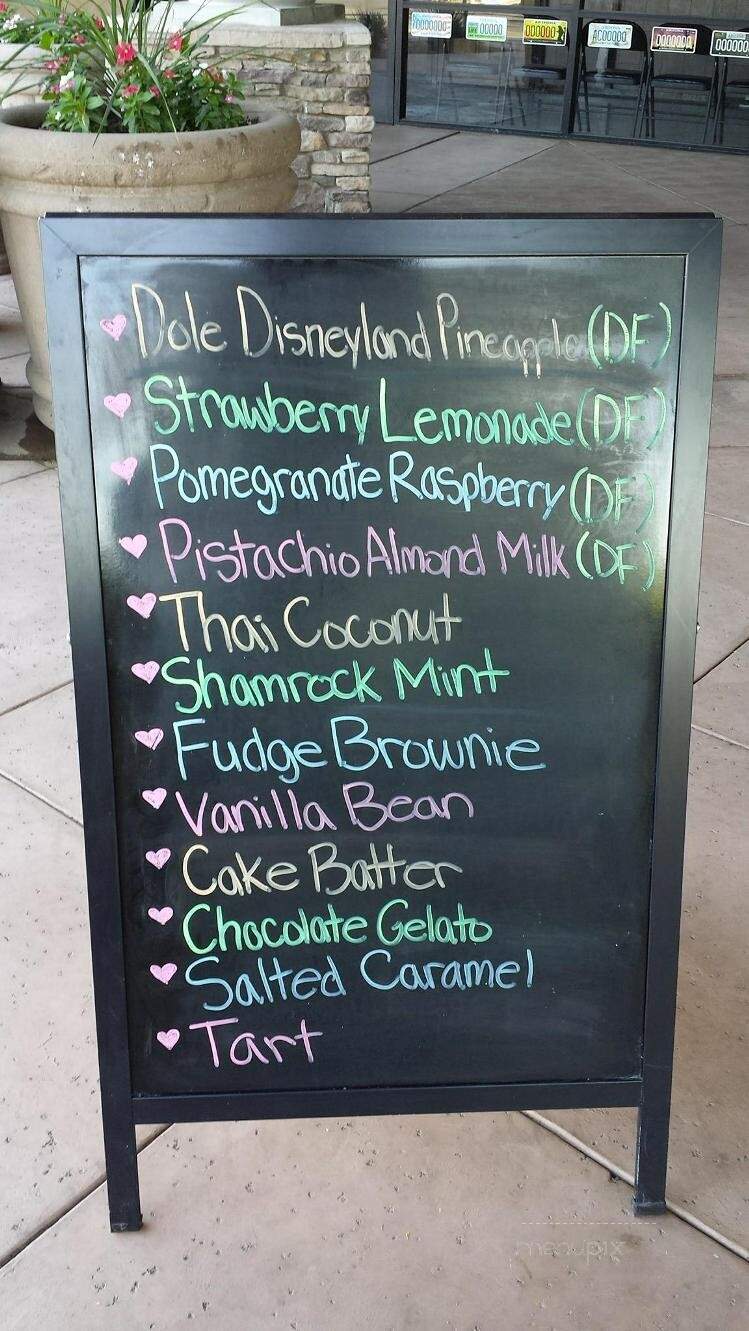 0000000
00000
000000
AC00000
0000000
00000
Dole Disneyland Pineapple (DF)
Strawberry Lemonade (DF)
Pomegranate Raspberry (DF)
Pistachio Almond Milk (DF)
Thai Coconut
Shamrock Mint
Fudge Brownie
Vanilla Bean
Cake Batter
Chocolate Gelato
Salted Caramel
Tart
menupix